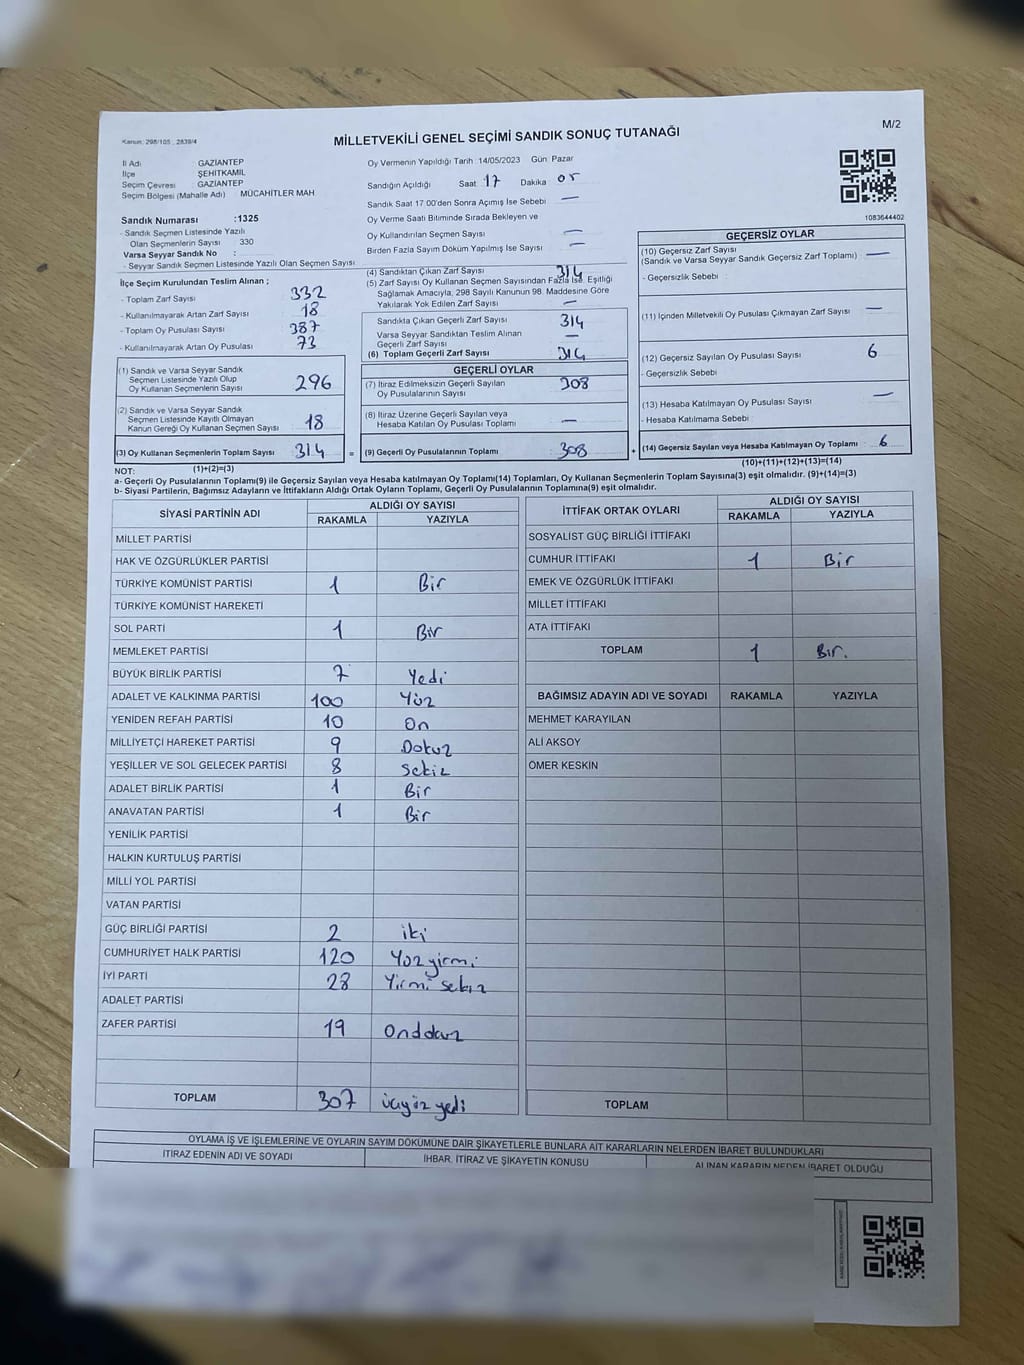 M/2
Kanun: 298/105 , 2839/4
MİLLETVEKİLİ GENEL SEÇİMİ SANDIK SONUÇ TUTANAĞI
İl Adı : GAZİANTEP
İlçe : ŞEHİTKAMİL
Seçim Çevresi : GAZİANTEP
Seçim Bölgesi (Mahalle Adı) : MÜCAHİTLER MAH
Sandık Numarası :1325
- Sandık Seçmen Listesinde Yazılı
Olan Seçmenlerin Sayısı : 330
Varsa Seyyar Sandık No :
- Seyyar Sandık Seçmen Listesinde Yazılı Olan Seçmen Sayısı :
Oy Vermenin Yapıldığı Tarih : 14/05/2023 Gün: Pazar
Sandığın Açıldığı Saat 17 Dakika 05
Sandık Saat 17:00'den Sonra Açımış İse Sebebi —
Oy Verme Saati Bitiminde Sırada Bekleyen ve
Oy Kullandırılan Seçmen Sayısı —
Birden Fazla Sayım Döküm Yapılmış İse Sayısı —
1083644402
İlçe Seçim Kurulundan Teslim Alınan ;
- Toplam Zarf Sayısı 332
- Kullanılmayarak Artan Zarf Sayısı 18
- Toplam Oy Pusulası Sayısı 387
- Kullanılmayarak Artan Oy Pusulası 73
(1) Sandık ve Varsa Seyyar Sandık
Seçmen Listesinde Yazılı Olup
Oy Kullanan Seçmenlerin Sayısı 296
(2) Sandık ve Varsa Seyyar Sandık
Seçmen Listesinde Kayıtlı Olmayan
Kanun Gereği Oy Kullanan Seçmen Sayısı 18
(3) Oy Kullanan Seçmenlerin Toplam Sayısı 314 =
(4) Sandıktan Çıkan Zarf Sayısı 314
(5) Zarf Sayısı Oy Kullanan Seçmen Sayısından Fazla İse, Eşitliği
Sağlamak Amacıyla, 298 Sayılı Kanunun 98. Maddesine Göre
Yakılarak Yok Edilen Zarf Sayısı —
Sandıkta Çıkan Geçerli Zarf Sayısı 314
Varsa Seyyar Sandıktan Teslim Alınan
Geçerli Zarf Sayısı —
(6) Toplam Geçerli Zarf Sayısı 314
GEÇERLİ OYLAR
(7) İtiraz Edilmeksizin Geçerli Sayılan
Oy Pusulalarının Sayısı 308
(8) İtiraz Üzerine Geçerli Sayılan veya
Hesaba Katılan Oy Pusulası Toplamı —
(9) Geçerli Oy Pusulalarının Toplamı 308 +
GEÇERSİZ OYLAR
(10) Geçersiz Zarf Sayısı —
(Sandık ve Varsa Seyyar Sandık Geçersiz Zarf Toplamı)
- Geçersizlik Sebebi :
(11) İçinden Milletvekili Oy Pusulası Çıkmayan Zarf Sayısı —
(12) Geçersiz Sayılan Oy Pusulası Sayısı 6
- Geçersizlik Sebebi
(13) Hesaba Katılmayan Oy Pusulası Sayısı —
- Hesaba Katılmama Sebebi :
(14) Geçersiz Sayılan veya Hesaba Katılmayan Oy Toplamı : 6
NOT: (1)+(2)=(3)
(10)+(11)+(12)+(13)=(14)
a- Geçerli Oy Pusulalarının Toplamı(9) ile Geçersiz Sayılan veya Hesaba katılmayan Oy Toplamı(14) Toplamları, Oy Kullanan Seçmenlerin Toplam Sayısına(3) eşit olmalıdır. (9)+(14)=(3)
b- Siyasi Partilerin, Bağımsız Adayların ve İttifakların Aldığı Ortak Oyların Toplamı, Geçerli Oy Pusulalarının Toplamına(9) eşit olmalıdır.
SİYASİ PARTİNİN ADI ALDIĞI OY SAYISI
RAKAMLA YAZIYLA
MİLLET PARTİSİ
HAK VE ÖZGÜRLÜKLER PARTİSİ
TÜRKİYE KOMÜNİST PARTİSİ 1 Bir
TÜRKİYE KOMÜNİST HAREKETİ
SOL PARTİ 1 Bir
MEMLEKET PARTİSİ
BÜYÜK BİRLİK PARTİSİ 7 Yedi
ADALET VE KALKINMA PARTİSİ 100 Yüz
YENİDEN REFAH PARTİSİ 10 On
MİLLİYETÇİ HAREKET PARTİSİ 9 Dokuz
YEŞİLLER VE SOL GELECEK PARTİSİ 8 Sekiz
ADALET BİRLİK PARTİSİ 1 Bir
ANAVATAN PARTİSİ 1 Bir
YENİLİK PARTİSİ
HALKIN KURTULUŞ PARTİSİ
MİLLİ YOL PARTİSİ
VATAN PARTİSİ
GÜÇ BİRLİĞİ PARTİSİ 2 iki
CUMHURİYET HALK PARTİSİ 120 Yüz yirmi
İYİ PARTİ 28 Yirmi sekiz
ADALET PARTİSİ
ZAFER PARTİSİ 19 Ondokuz
TOPLAM 307 üçyüz yedi
İTTİFAK ORTAK OYLARI ALDIĞI OY SAYISI
RAKAMLA YAZIYLA
SOSYALİST GÜÇ BİRLİĞİ İTTİFAKI
CUMHUR İTTİFAKI 1 Bir
EMEK VE ÖZGÜRLÜK İTTİFAKI
MİLLET İTTİFAKI
ATA İTTİFAKI
TOPLAM 1 Bir.
BAĞIMSIZ ADAYIN ADI VE SOYADI RAKAMLA YAZIYLA
MEHMET KARAYILAN
ALİ AKSOY
ÖMER KESKİN
TOPLAM
OYLAMA İŞ VE İŞLEMLERİNE VE OYLARIN SAYIM DÖKÜMÜNE DAİR ŞİKAYETLERLE BUNLARA AİT KARARLARIN NELERDEN İBARET BULUNDUKLARI
İTİRAZ EDENİN ADI VE SOYADI İHBAR, İTİRAZ VE ŞİKAYETİN KONUSU ALINAN KARARIN NEDEN İBARET OLDUĞU